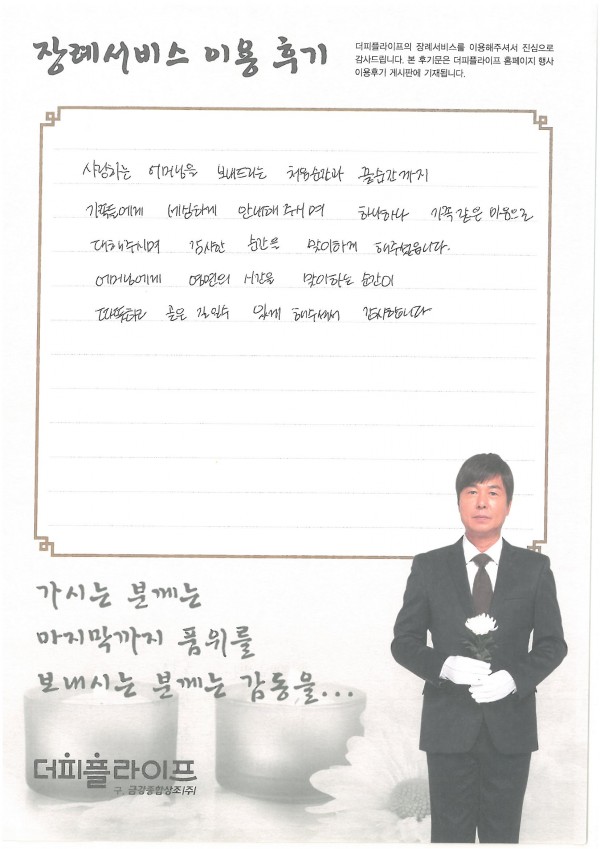 장례서비스 이용 후기
더피플라이프의 장례서비스를 이용해주셔서 진심으로
감사드립니다. 본 후기문은 더피플라이프 홈페이지 행사
이용후기 게시판에 기재됩니다.
사랑하는 어머님을 보내드리는 처음순간과 끝순간까지
가족들에게 세심하게 안내해주시며 하나하나 가족같은 마음으로
대해주시며 감사한 순간을 맞이하게 해주셨습니다.
어머님에게 영원의 시간을 맞이하는 순간이
따뜻하고 좋은 길일수 있게 해주셔서 감사합니다
가시는 분께는
마지막까지 품위를
보내시는 분께는 감동을...
더피플라이프
구. 금강종합상조(주)